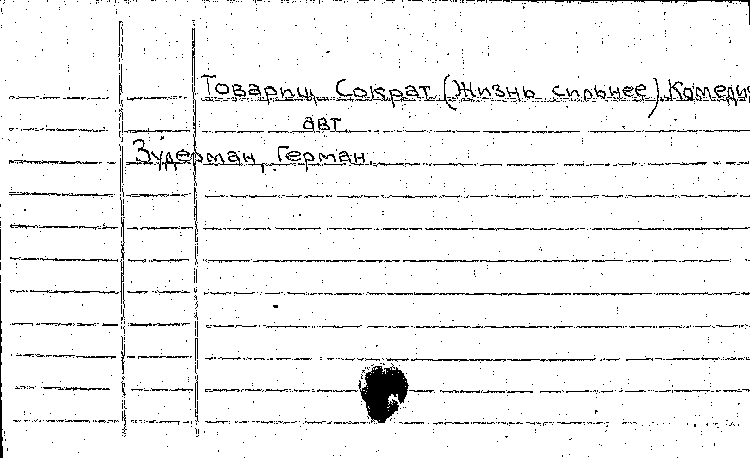 Товарищ Сократ (Жизнь сильнее). Комедия
авт.
Зудерман, Герман.